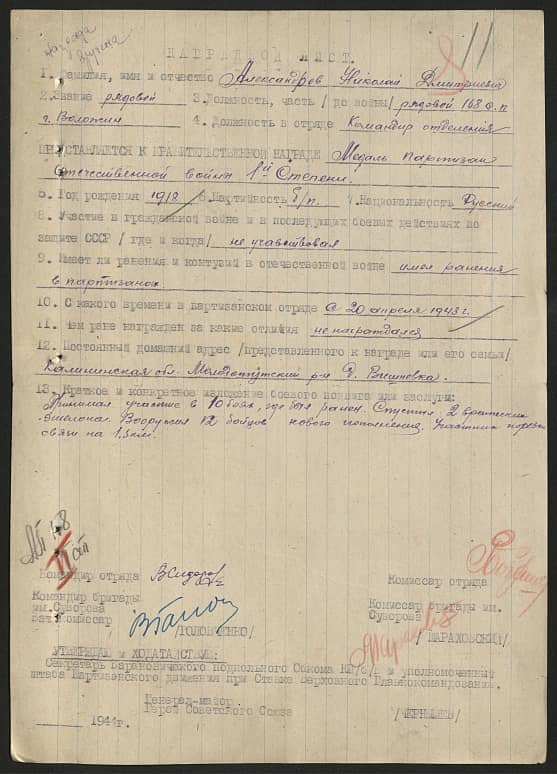 награда
вручена
11
НАГРАДНОЙ ЛИСТ.
1. Фамилия, имя и отчество Александров Николай Дмитриевич
2. Звание рядовой 3. Должность, часть /до войны/ рядовой 168
г. Воложин 4. Должность в отряде Командир отделения
ПРЕДСТАВЛЯЕТСЯ К ПРАВИТЕЛЬСТВЕННОЙ НАГРАДЕ Медаль Партизан
Отечественной войны 1ой Степени.
5. Год рождения 1918 6. Партийность б/п. 7. Национальность Русский
8. Участие в гражданской войне и в последующих боевых действиях по
защите СССР /где и когда/ не участвовал
9. Имеет ли ранения и контузии в отечественной войне имел ранения
в партизанах
10. С какого времени в партизанском отряде с 20 апреля 1943 г.
11. Чем ране награжден за какие отличия не награждался
12. Постоянный домашний адрес /представленного к награде или его семьи/
Калининская обл. Молодотутский р-н д. Вишновка.
13. Краткое и конкретное изложение боевого подвига или заслуги:
Принимал участие в 10 боях, где был ранен. Спустил 2 вражеских
эшелона. Вооружил 12 бойцов нового пополнения. Участник порезки
связи на 1,5 км.
Командир отряда
Комиссар отряда
Командир бригады
им. Суворова
Комиссар бригады им.
Суворова
бат. комиссар
/ГОЛОВЧЕНКО/
/МАРАХОВСКИЙ/
УТВЕРЖДАЮ и ХОДАТАЙСТВУЮ:
Секретарь Барановичского подпольного Обкома КП/б/Б и уполномоченный
штаба Партизанского движения при Ставке Верховного Главнокомандования.
Генерал-майор
Герой Советского Союза
/ЧЕРНЫШЕВ/
1944г.